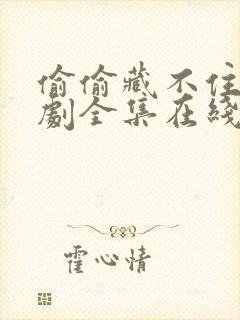 偷偷藏不住
劇全集在綫
霍心情